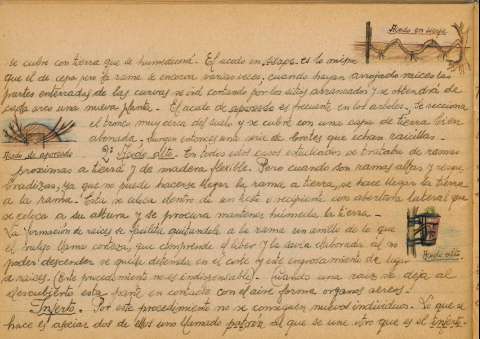 Acodo en arope
se cubre con tierra que se humedecerá. El acodo en arope es lo mismo
que el de cepa pero la rama se encorva varias veces; cuando hayan arrojado raices las
partes enterradas de las curvas se irá cortando por los sitios alcanzados y se obtendrá de
cada arco una nueva planta. El acodo de aporcado es frecuente en los arboles. Se secciona
el tronco muy cerca del suelo y se cubre con una capa de tierra bien
abonada. Surgen entonces una serie de brotes que echan raicillas.
Acodo de aporcado
2º Acodo alto. En todos estos casos estudiados se trataba de ramas
proximas a tierra y de madera flexible. Pero cuando son ramas altas y
ya que no puede hacerse llegar la rama a tierra, se hace llegar la tierra
a la rama. Esta se aloca dentro de un bote o recipiente con abertura lateral que
se coloca a su altura y se procura mantener húmeda la tierra.
La formación de raices se facilita quitandole a la rama un anillo de lo que
el vulgo llama corteza, que comprende el liber y la savia elaborada al no
poder descender se queda detenida en el corte y este engrosamiento da lugar
a raices. (Este procedimiento no es indispensable). Cuando una raiz se deja al
descubierto esta parte en contacto con el aire forma organos aereos.
Acodo alto
Injerto. Por este procedimiento no se consiguen nuevos individuos. Lo que se
hace es asociar dos de ellos uno llamado patrón al que se une otro que es el injerto.